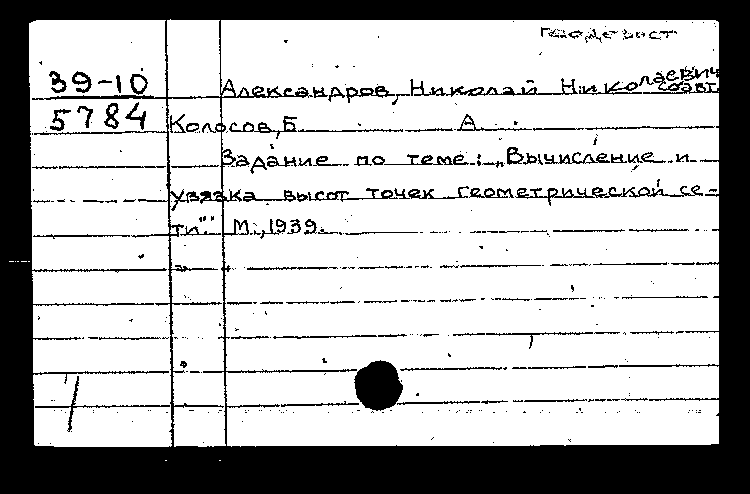 геодезист
39-10 Александров, Николай Николаевич
соавт.
5784 Колосов, Б. А.
Задание по теме: „Вычисление и
увязка высот точек геометрической се-
ти". М., 1939.